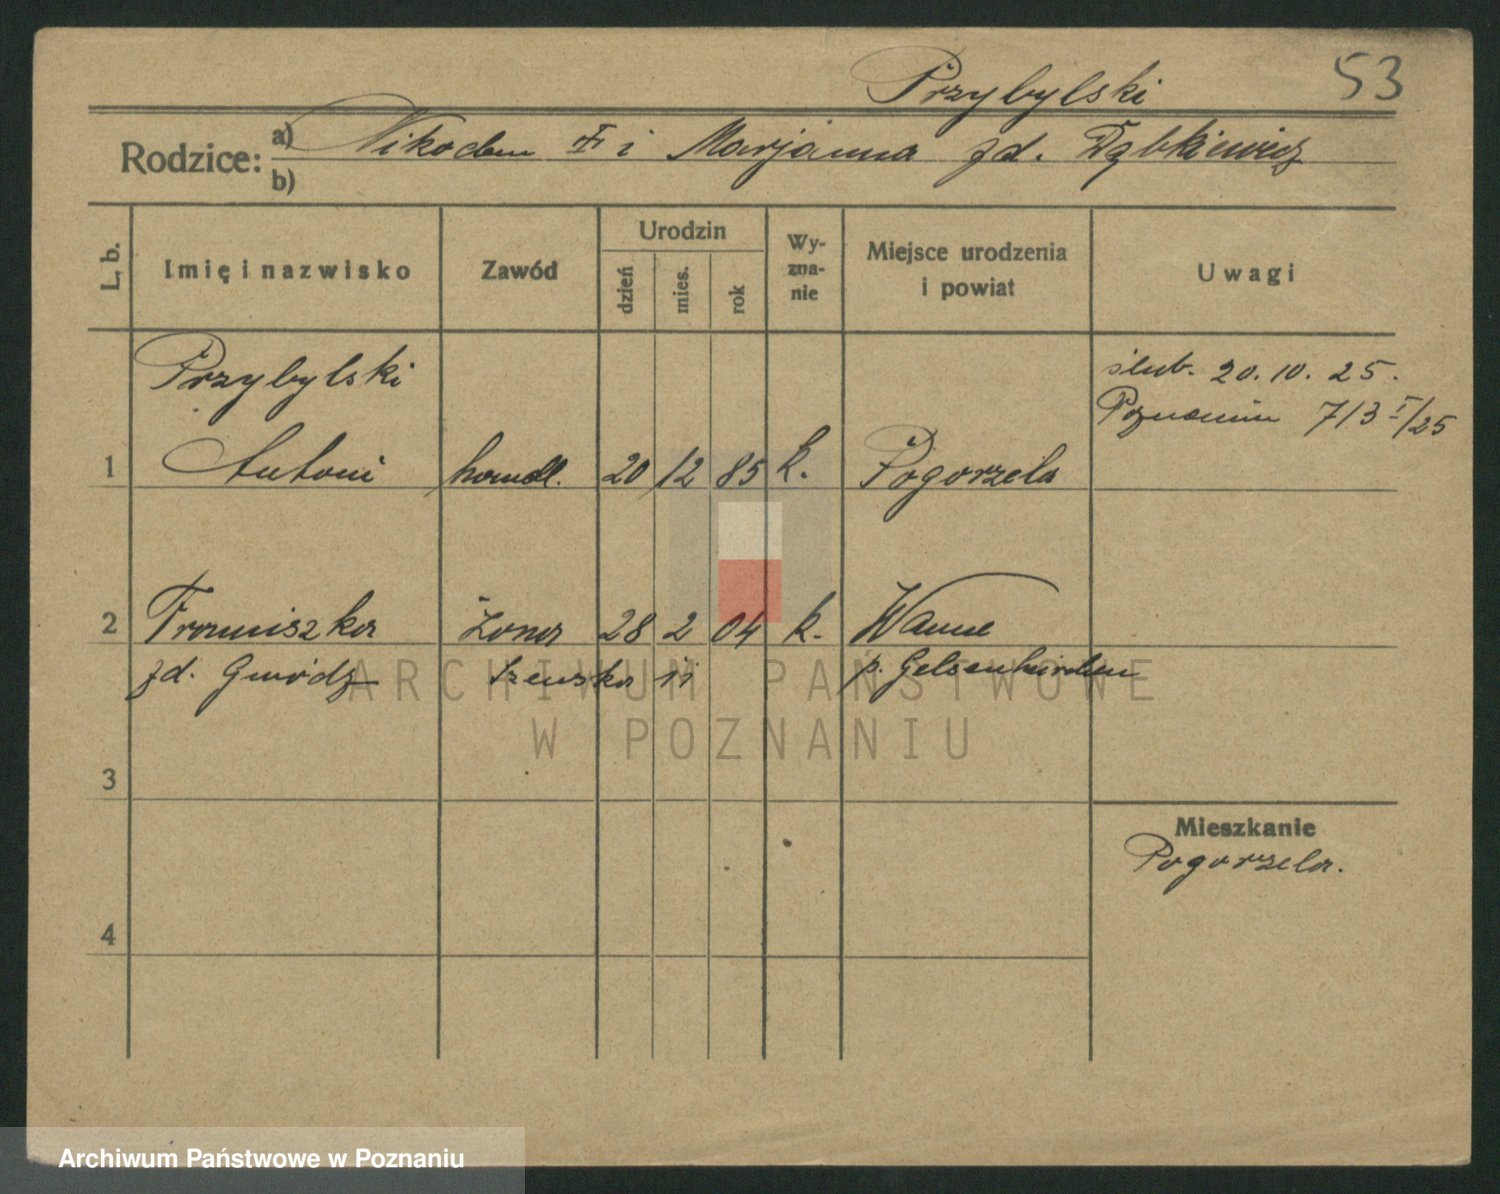 Przybylski 53
Rodzice: a) Nikodem i Marjanna zd. Dąbkiewicz
b)
L. b. Imię i nazwisko Zawód Urodzin dzień mies. rok Wyznanie Miejsce urodzenia i powiat Uwagi
Przybylski ślub. 20.10.25.
Poznaniu 713 I/25
1 Antoni handl. 20 12 85 k. Pogorzela
2 Franciszka żona 28 2 04 k. Wanne
zd. Gwódz p. Gelsenkirchen
ARCHIWUM PAŃSTWOWE
W POZNANIU
3
Mieszkanie
Pogorzela.
4
Archiwum Państwowe w Poznaniu